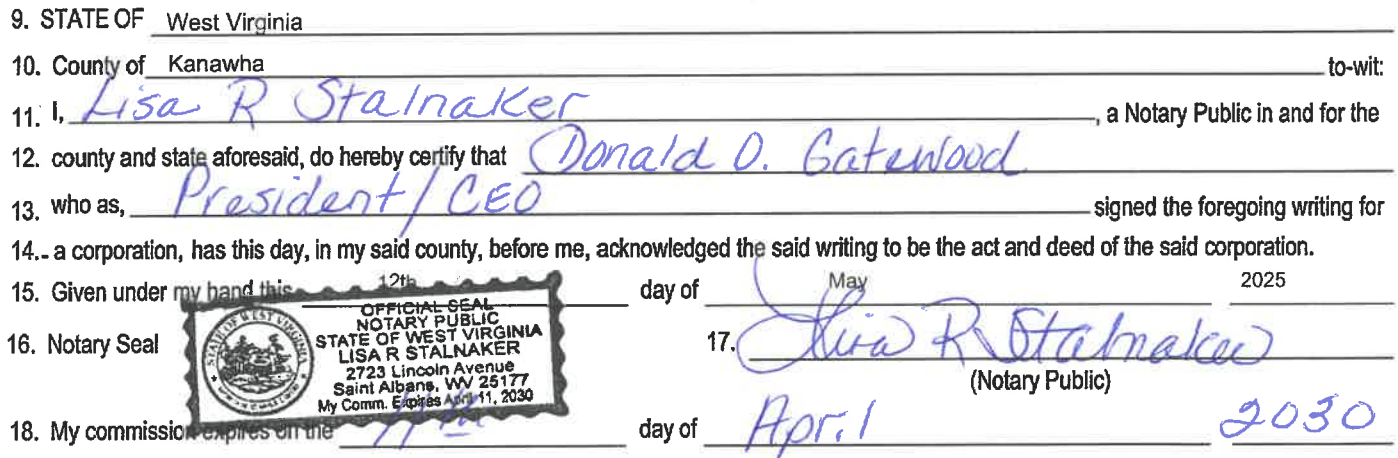 9. STATE OF West Virginia
10. County of Kanawha to-wit:
11. I, Lisa R Stalnaker, a Notary Public in and for the
12. county and state aforesaid, do hereby certify that Donald D. Gatewood
13. who as, President/CEO signed the foregoing writing for
14. a corporation, has this day, in my said county, before me, acknowledged the said writing to be the act and deed of the said corporation.
15. Given under my hand this 12th day of May 2025
OFFICIAL SEAL
NOTARY PUBLIC
STATE OF WEST VIRGINIA
LISA R STALNAKER
2723 Lincoln Avenue
Saint Albans, WV 25177
My Comm. Expires April 11, 2030
STATE OF WEST VIRGINIA
16. Notary Seal 17. Lisa R Stalnaker
(Notary Public)
18. My commission expires on the 11th day of April 2030